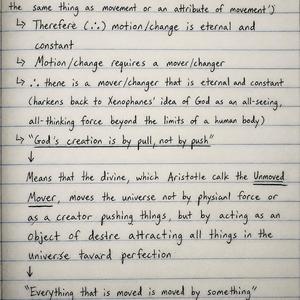 the same thing as movement or an attribute of movement')
↳ Therefere (∴) motion/change is eternal and
constant
↳ Motion/change requires a mover/changer
↳ ∴ there is a mover/changer that is eternal and constant
(harkens back to Xenophanes' idea of God as an all-seeing,
all-thinking force beyond the limits of a human body)
↳ "God's creation is by pull, not by push"
↓
Means that the divine, which Aristotle calk the Unmoved
Mover, moves the universe not by physianl force or
as a creator pushing things, but by acting as an
object of desire attracting all things in the
universe tavard perfection
↓
"Everything that is moved is moved by something"